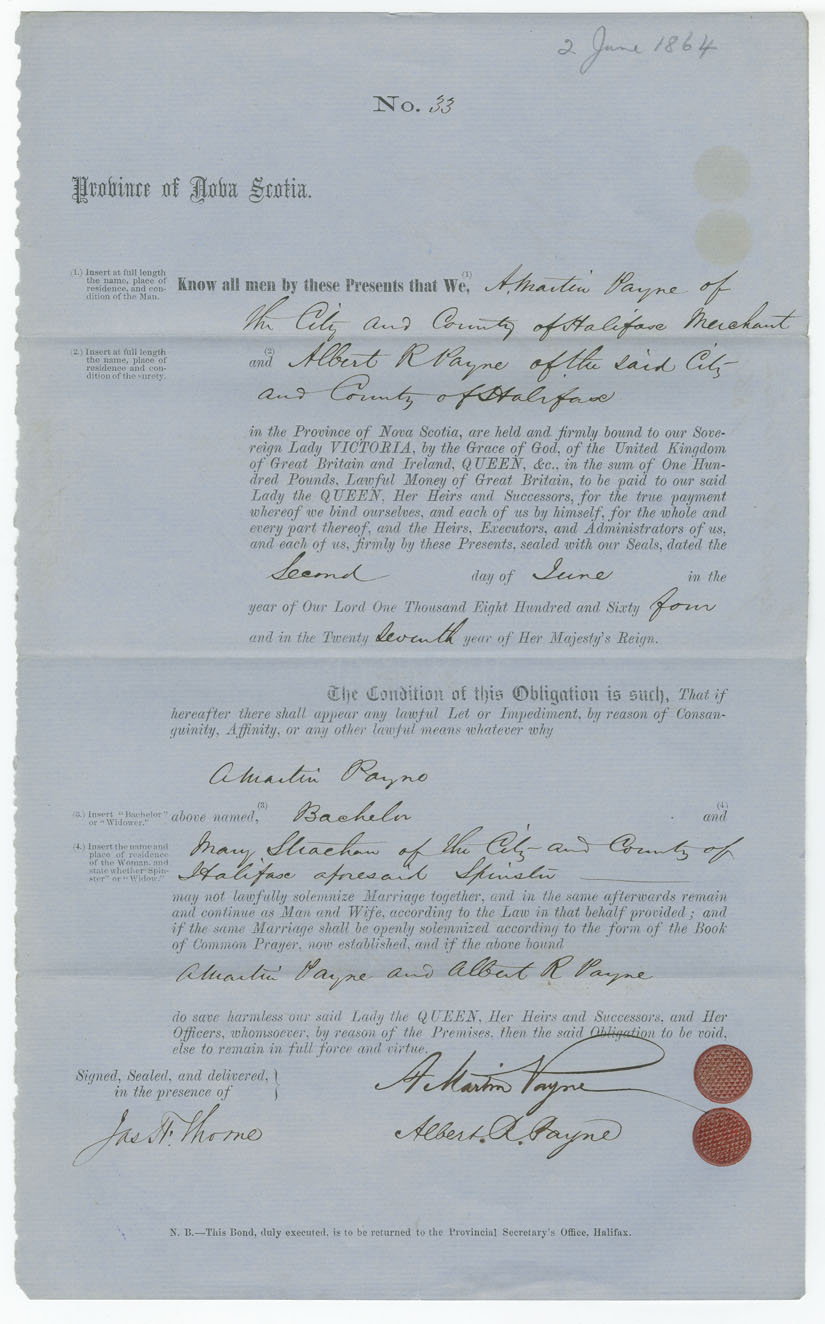 2 June 1864
No. 33
Province of Nova Scotia.
(1.) Insert at full length
the name, place of
residence, and con-
dition of the Man.
Know all men by these Presents that We, (1) A. Martin Payne of
the City and County of Halifax Merchant
(2.) Insert at full length
the name, place of
residence and con-
dition of the surety.
and (2) Albert R Payne of the said City
and County of Halifax
in the Province of Nova Scotia, are held and firmly bound to our Sove-
reign Lady VICTORIA, by the Grace of God, of the United Kingdom
of Great Britain and Ireland, QUEEN, &c., in the sum of One Hun-
dred Pounds, Lawful Money of Great Britain, to be paid to our said
Lady the QUEEN, Her Heirs and Successors, for the true payment
whereof we bind ourselves, and each of us by himself, for the whole and
every part thereof, and the Heirs, Executors, and Administrators of us,
and each of us, firmly by these Presents, sealed with our Seals, dated the
Second day of June in the
year of Our Lord One Thousand Eight Hundred and Sixty four
and in the Twenty Seventh year of Her Majesty's Reign.
The Condition of this Obligation is such, That if
hereafter there shall appear any lawful Let or Impediment, by reason of Consan-
guinity, Affinity, or any other lawful means whatever why
A Martin Payne
(3.) Insert "Bachelor"
or "Widower."
above named, (3) Bachelor and (4)
(4.) Insert the name and
place of residence
of the Woman, and
state whether "Spin-
ster" or "Widow."
Mary Strachan of the City and County of
Halifax aforesaid Spinster
may not lawfully solemnize Marriage together, and in the same afterwards remain
and continue as Man and Wife, according to the Law in that behalf provided; and
if the same Marriage shall be openly solemnized according to the form of the Book
of Common Prayer, now established, and if the above bound
A Martin Payne and Albert R Payne
do save harmless our said Lady the QUEEN, Her Heirs and Successors, and Her
Officers, whomsoever, by reason of the Premises, then the said Obligation to be void,
else to remain in full force and virtue.
Signed, Sealed, and delivered,
in the presence of
A Martin Payne
Jas H. Thorne
Albert. R. Payne
N. B.—This Bond, duly executed, is to be returned to the Provincial Secretary's Office, Halifax.